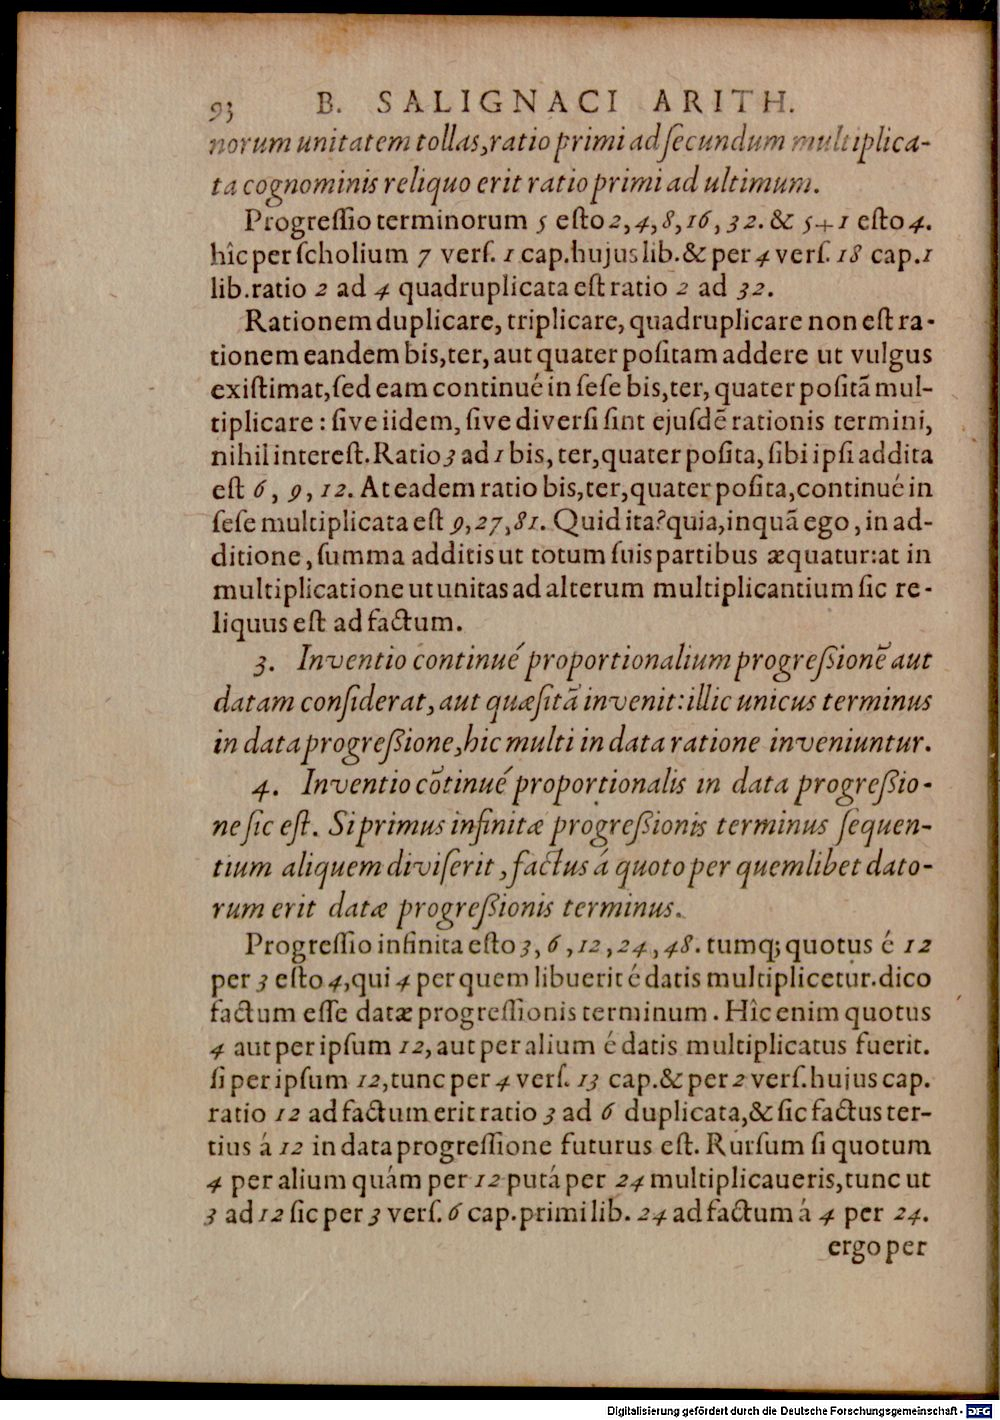 93 B. SALIGNACI ARITH.
norum unitatem tollas, ratio primi ad ſecundum multiplica-
ta cognominis reliquo erit ratio primi ad ultimum.
Progreſſio terminorum 5 eſto 2, 4, 8, 16, 32. & 5÷1 eſto 4.
hîc per ſcholium 7 verſ. 1 cap. hujus lib. & per 4 verſ. 18 cap. 1
lib. ratio 2 ad 4 quadruplicata eſt ratio 2 ad 32.
Rationem duplicare, triplicare, quadruplicare non eſt ra-
tionem eandem bis, ter, aut quater poſitam addere ut vulgus
exiſtimat, ſed eam continué in ſeſe bis, ter, quater poſitã mul-
tiplicare : ſive iidem, ſive diverſi ſint ejuſdē rationis termini,
nihil intereſt. Ratio 3 ad 1 bis, ter, quater poſita, ſibi ipſi addita
eſt 6, 9, 12. At eadem ratio bis, ter, quater poſita, continué in
ſeſe multiplicata eſt 9, 27, 81. Quid ita? quia, inquã ego, in ad-
ditione, ſumma additis ut totum ſuis partibus æquatur: at in
multiplicatione ut unitas ad alterum multiplicantium ſic re-
liquus eſt ad factum.
3. Inventio continué proportionalium progreßionē aut
datam conſiderat, aut quæſitã invenit: illic unicus terminus
in data progreßione, hic multi in data ratione inveniuntur.
4. Inventio cōtinué proportionalis in data progreßio-
ne ſic eſt. Si primus infinitæ progreßionis terminus ſequen-
tium aliquem diviſerit, factus á quoto per quemlibet dato-
rum erit datæ progreßionis terminus.
Progreſſio infinita eſto 3, 6, 12, 24, 48. tumq; quotus é 12
per 3 eſto 4, qui 4 per quem libuerit é datis multiplicetur. dico
factum eſſe datæ progreſſionis terminum. Hîc enim quotus
4 aut per ipſum 12, aut per alium é datis multiplicatus fuerit.
ſi per ipſum 12, tunc per 4 verſ. 13 cap. & per 2 verſ. hujus cap.
ratio 12 ad factum erit ratio 3 ad 6 duplicata, & ſic factus ter-
tius á 12 in data progreſſione futurus eſt. Rurſum ſi quotum
4 per alium quám per 12 putá per 24 multiplicaueris, tunc ut
3 ad 12 ſic per 3 verſ. 6 cap. primi lib. 24 ad factum á 4 per 24.
ergo per
Digitalisierung gefördert durch die Deutsche Forschungsgemeinschaft - DFG